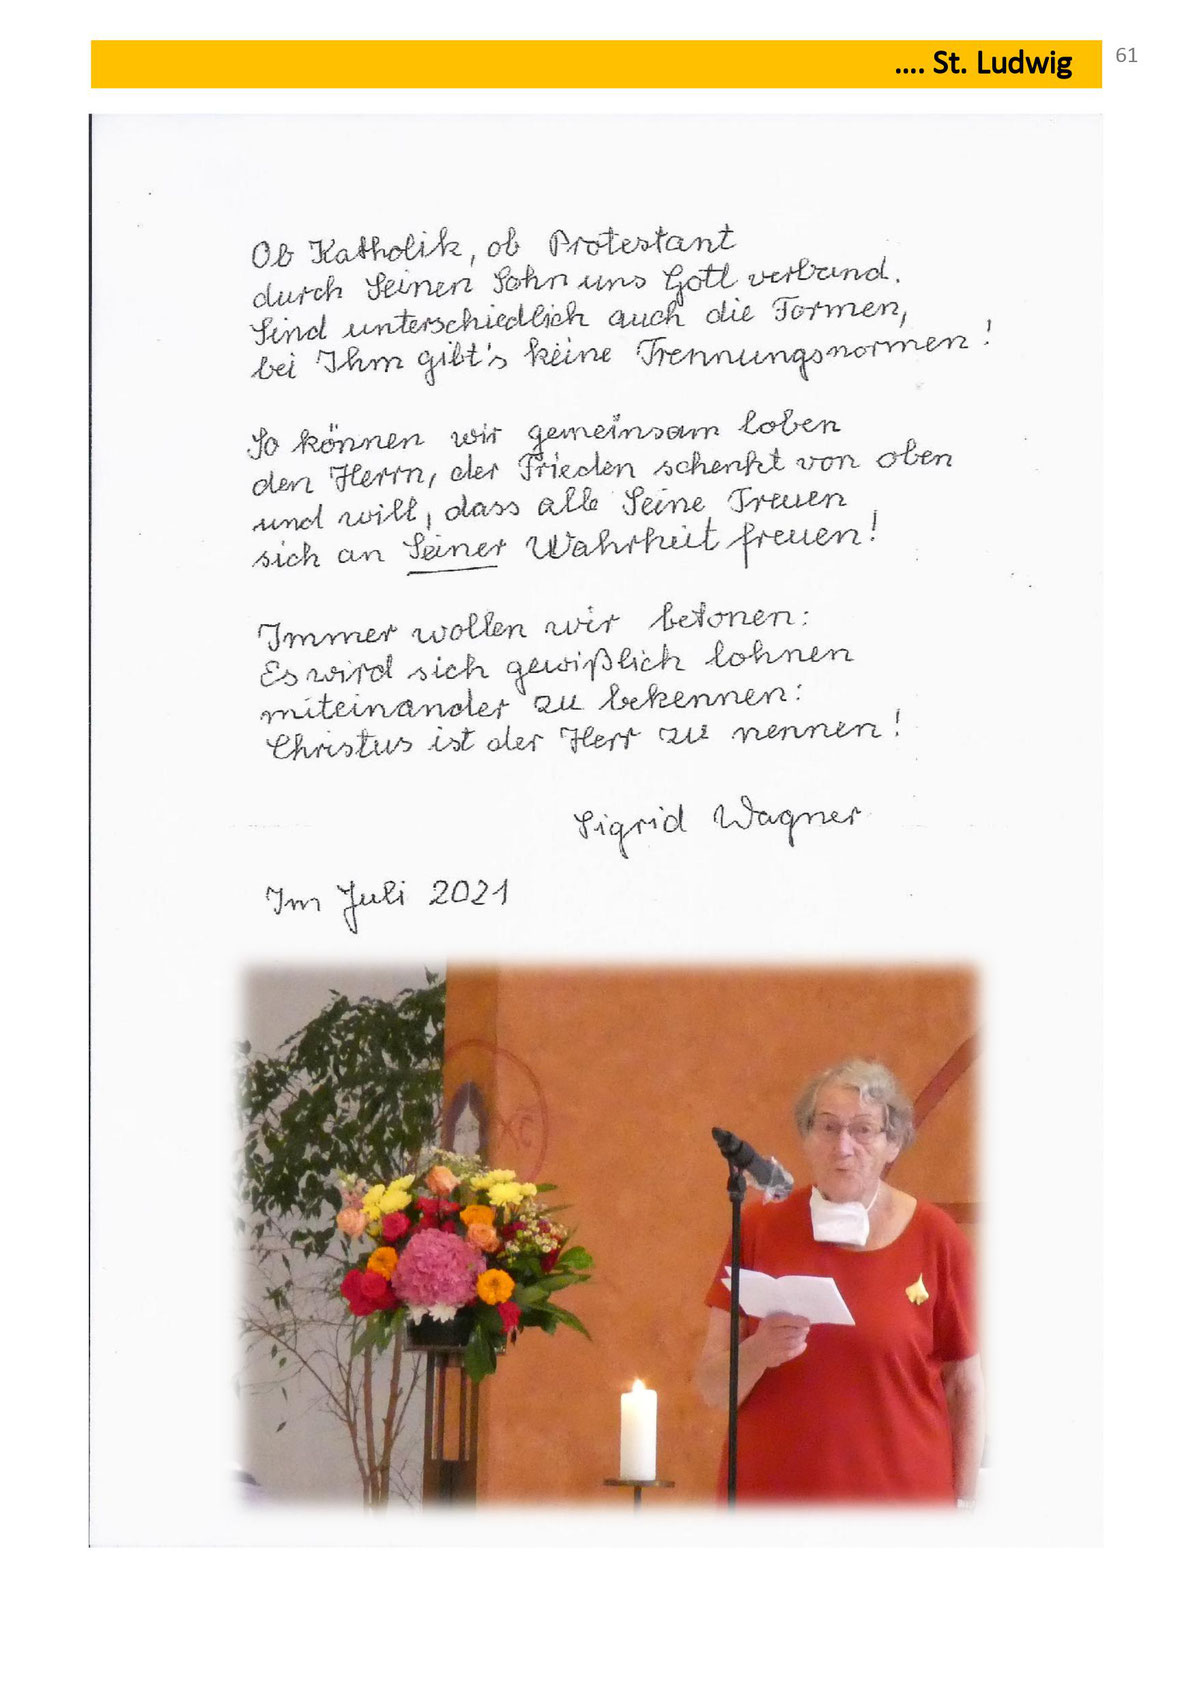 .... St. Ludwig
61
Ob Katholik, ob Protestant
durch Seinen Sohn uns Gott verband.
Sind unterschiedlich auch die Formen,
bei Ihm gibt's keine Trennungsnormen!
So können wir gemeinsam loben
den Herrn, der Frieden schenkt von oben
und will, dass alle Seine Treuen
sich an Seiner Wahrheit freuen!
Immer wollen wir betonen:
Es wird sich gewißlich lohnen
miteinander zu bekennen:
Christus ist der Herr zu nennen!
Sigrid Wagner
Im Juli 2021